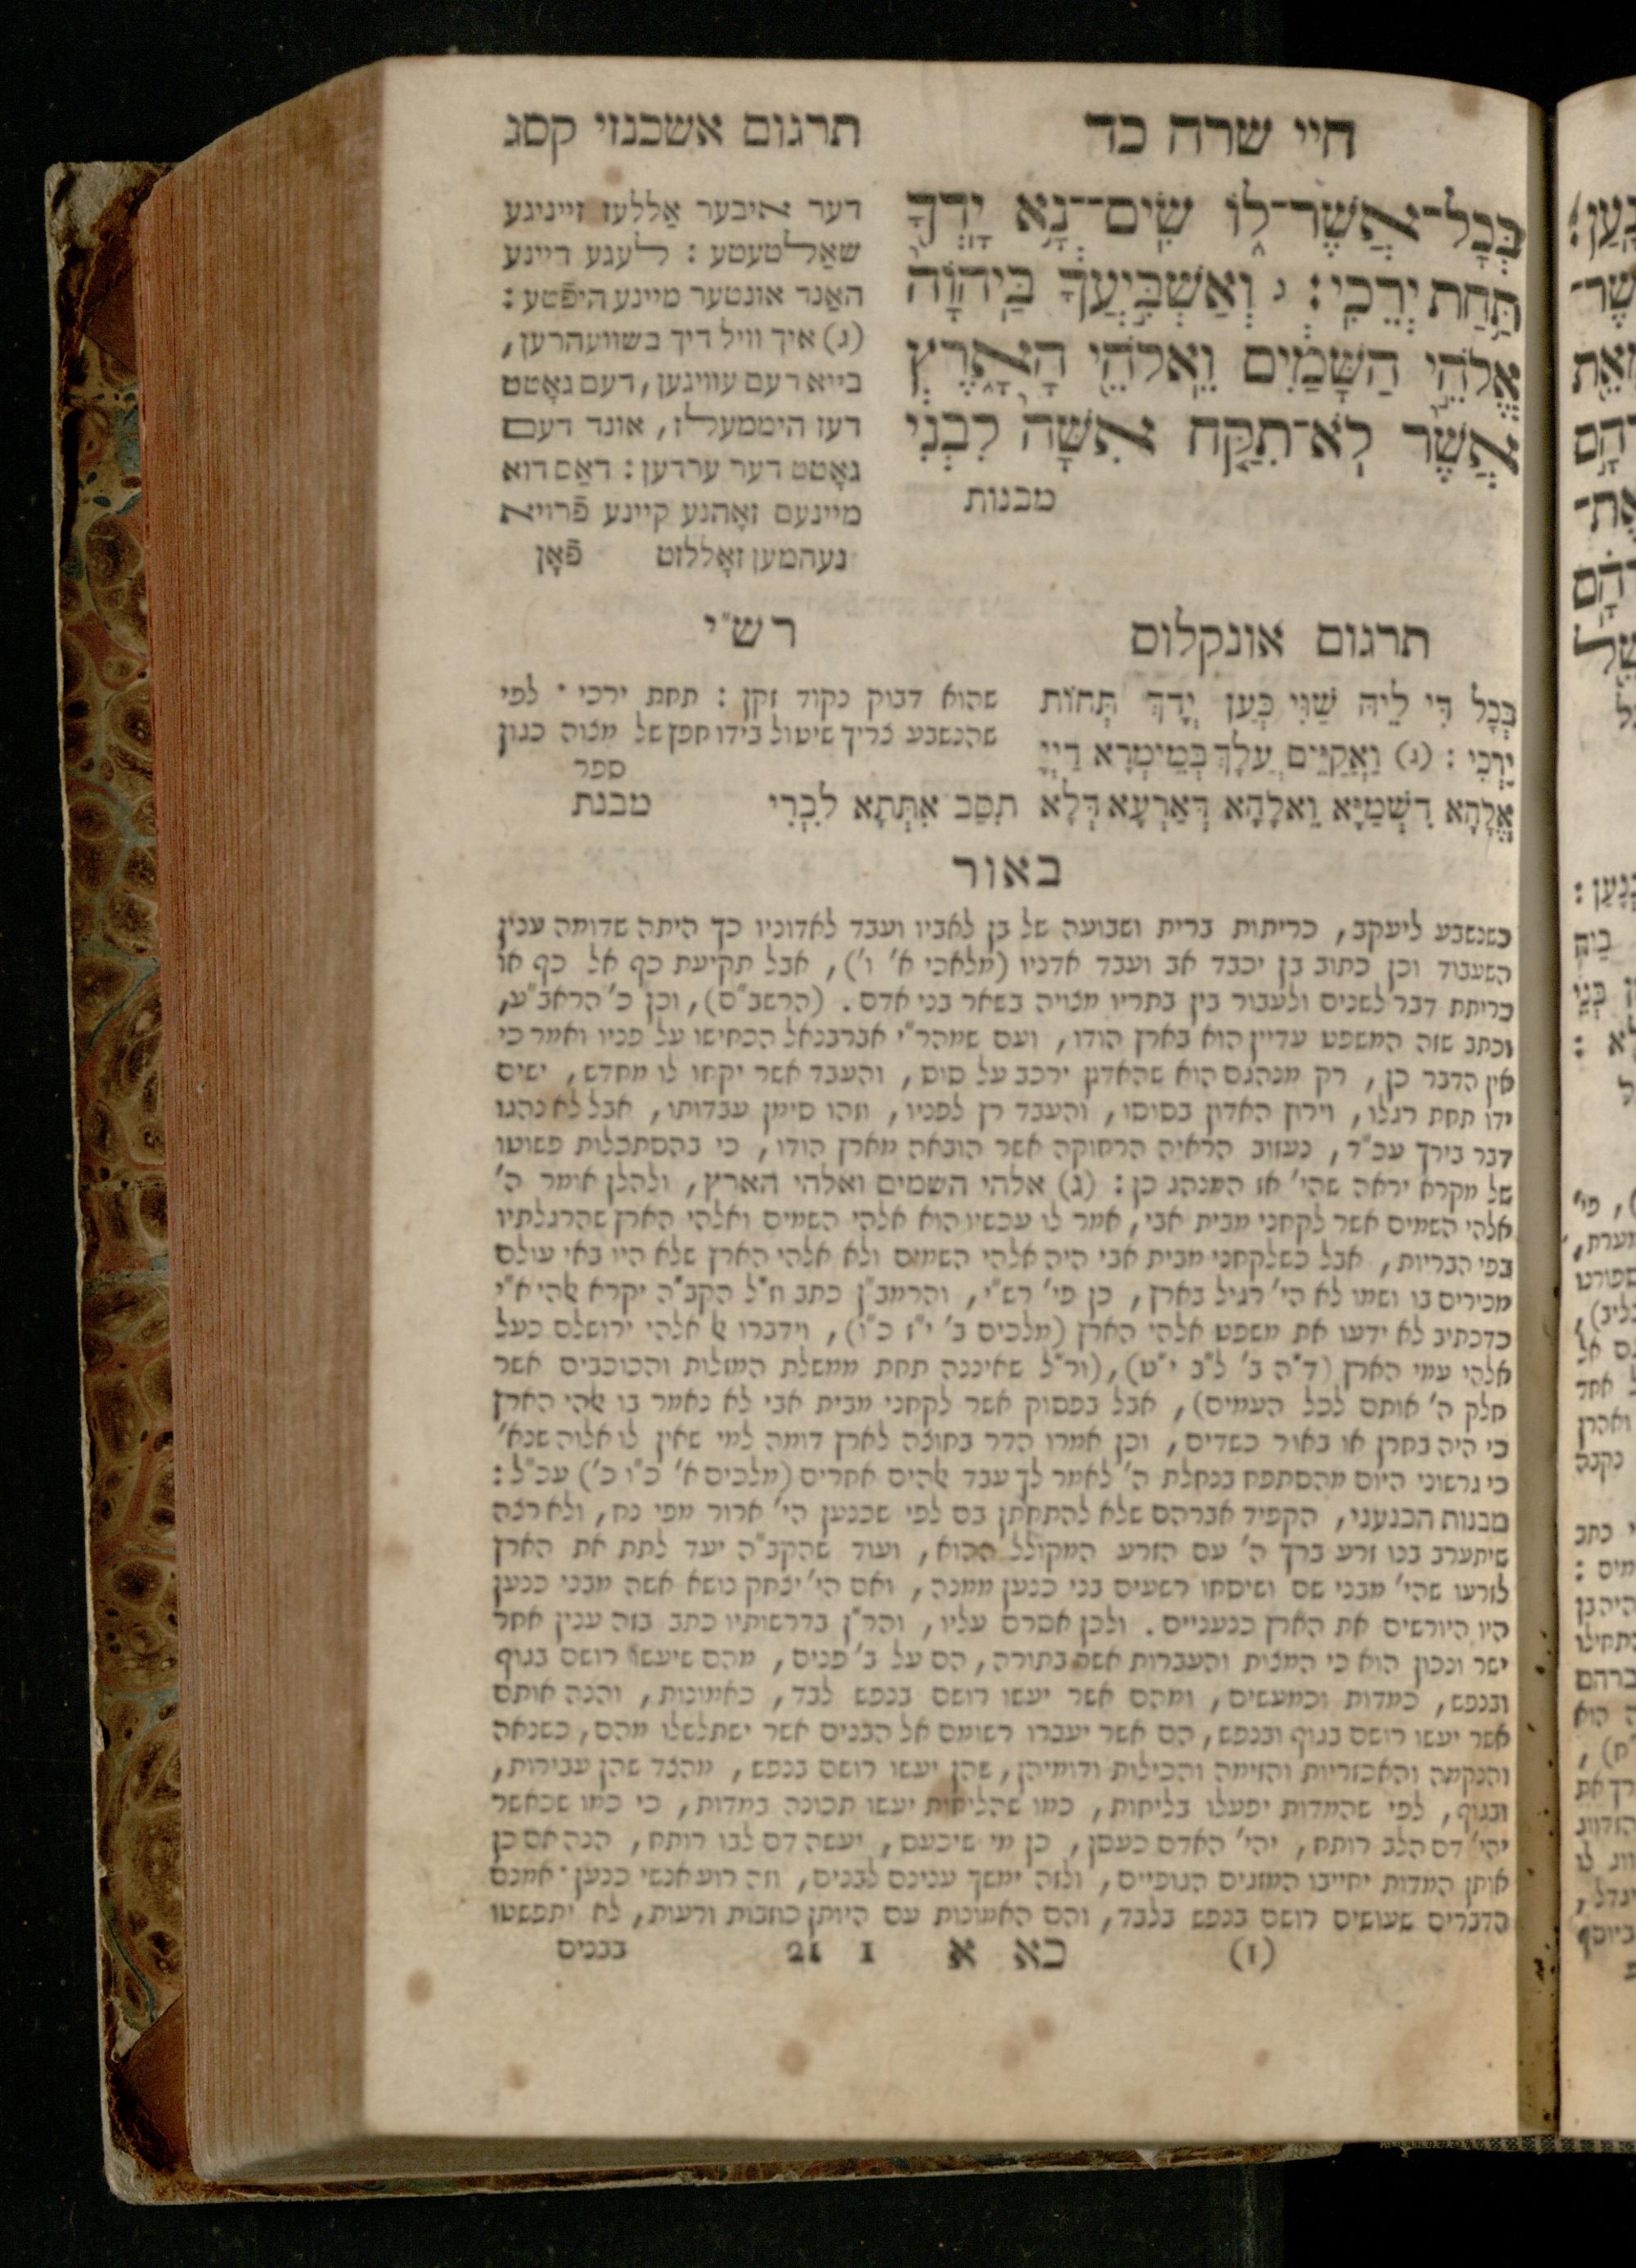 חיי שרה כד
תרגום אשכנזי קסג
בְּכָל־אֲשֶׁר־לוֹ שִׂים־נָא יָדְךָ
תַּחַת יְרֵכִי : ג וְאַשְׁבִּיעֲךָ בַּיהוָֹה
אֱלֹהֵי הַשָּׁמַיִם וֵאלֹהֵי הָאָרֶץ
אֲשֶׁר לֹא־תִקַּח אִשָּׁה לִבְנִי
מבנות
דער איבער אַללעז זייניגע
שאַלטעטע : לעגע דיינע
האַנד אונטער מיינע היפֿטע :
(ג) איך וויל דיך בשווערהרען,
בייא דעם עוויגען, דעם גאָטט
דעז היממעלז, אונד דעם
גאָטט דער ערדען : דאַס דוא
מיינעם זאָהנע קיינע פֿרויא
נעהמען זאָללזט פֿאָן
תרגום אונקלוס
בְּכָל דִּי לֵיהּ שַׁוִּי כְּעַן יְדָךְ תְּחוֹת
יַרְכִּי : (ג) וַאֲקַיֵּים עֲלָךְ בְּמֵימְרָא דַיְיָ
אֱלָהָא דִשְׁמַיָּא וֵאלָהָא דְּאַרְעָא דְּלָא תִסַּב אִתְּתָא לִבְרִי מבנת
רש"י
שהוא דבוק נקוד זקן : תחת ירכי · לפי
שהנשבע צריך שיטול בידו חפץ של מצוה כגון
ספר
באור
כשנשבע ליעקב, כריתות ברית ושבועה של בן לאביו ועבד לאדוניו כך היתה שדומה ענין
השעבוד וכן כתוב בן יכבד אב ועבד אדניו (מלאכי א' ו'), אבל תקיעת כף אל כף או
כריתת דבר לשנים ולעבור בין בתריו מצויה בשאר בני אדם. (הרשב"ם), וכן כ' הראב"ע,
וכתב שזה המשפט עדיין הוא בארץ הודו, ועם שמהר"י אברבנאל הכחישו על פניו ואמר כי
אין הדבר כן, רק מנהגם הוא שהאדון ירכב על סוס, והעבד אשר יקחו לו מחדש, ישים
ידו תחת רגלו, וירוץ האדון בסוסו, והעבד רץ לפניו, וזהו סימן עבדותו, אבל לא נהגו
דבר בירך עכ"ד, נעזוב הראיה הרחוקה אשר הובאה מארץ הודו, כי בהסתכלות פשוטו
של מקרא יראה שהי' אז המנהג כן : (ג) אלהי השמים ואלהי הארץ, ולהלן אומר ה'
אלהי השמים אשר לקחני מבית אבי, אמר לו עכשיו הוא אלהי השמים ואלהי הארץ שהרגלתיו
בפי הבריות, אבל כשלקחני מבית אבי היה אלהי השמים ולא אלהי הארץ שלא היו באי עולם
מכירים בו ושמו לא הי' רגיל בארץ, כן פי' רש"י, והרמב"ן כתב וז"ל הקב"ה יקרא אלהי א"י
כדכתיב לא ידעו את משפט אלהי הארץ (מלכים ב' י"ז כ"ו), וידברו אל אלהי ירושלם כעל
אלהי עמי הארץ (ד"ה ב' ל"ב י"ט), (ור"ל שאיננה תחת ממשלת המזלות והכוכבים אשר
חלק ה' אותם לכל העמים), אבל בפסוק אשר לקחני מבית אבי לא נאמר בו אלהי הארץ
כי היה בחרן או באור כשדים, וכן אמרו הדר בחוצה לארץ דומה למי שאין לו אלוה שנא'
כי גרשוני היום מהסתפח בנחלת ה' לאמר לך עבד אלהים אחרים (מלכים א' כ"ו כ') עכ"ל :
מבנות הכנעני, הקפיד אברהם שלא להתחתן בם לפי שכנען הי' ארור מפי נח, ולא רצה
שיתערב בנו זרע ברך ה' עם הזרע המקולל ההוא, ועוד שהקב"ה יעד לתת את הארץ
לזרעו שהי' מבני שם ושיסחו רשעים בני כנען ממנה, ואם הי' יצחק נושא אשה מבני כנען
היו היורשים את הארץ כנעניים. ולכן אסרם עליו, והר"ן בדרשותיו כתב בזה ענין אחר
ישר ונכון הוא כי המצות והעברות אשר בתורה, הם על ב' פנים, מהם שיעשו רושם בגוף
ובנפש, כמדות וכמעשים, ומהם אשר יעשו רושם בנפש לבד, כאמונות, והנה אותם
אשר יעשו רושם בגוף ובנפש, הם אשר יעברו רשומם אל הבנים אשר ישתלשלו מהם, כשנאה
והנקמה והאכזריות והזימה והכילות ודומיהן, שהן יעשו רושם בנפש, מהצד שהן עבירות,
ובגוף, לפי שהמדות יפעלו בליחות, כמו שהליחות יעשו תכונה במדות, כי כמו שכאשר
יהי' דם הלב רותח, יהי' האדם כעסן, כן מי שיכעם, יעשה דם לבו רותח, הנה אם כן
אותן המדות יחייבו המזגים הגופיים, ולזה ימשך ענינם לבנים, וזה רוע אנשי כנען · אמנם
הדברים שעושים רושם בנפש בלבד, והם האמונות עם היותן כוזבות ורעות, לא יתפשטו
(I) כא א 21 I בבנים